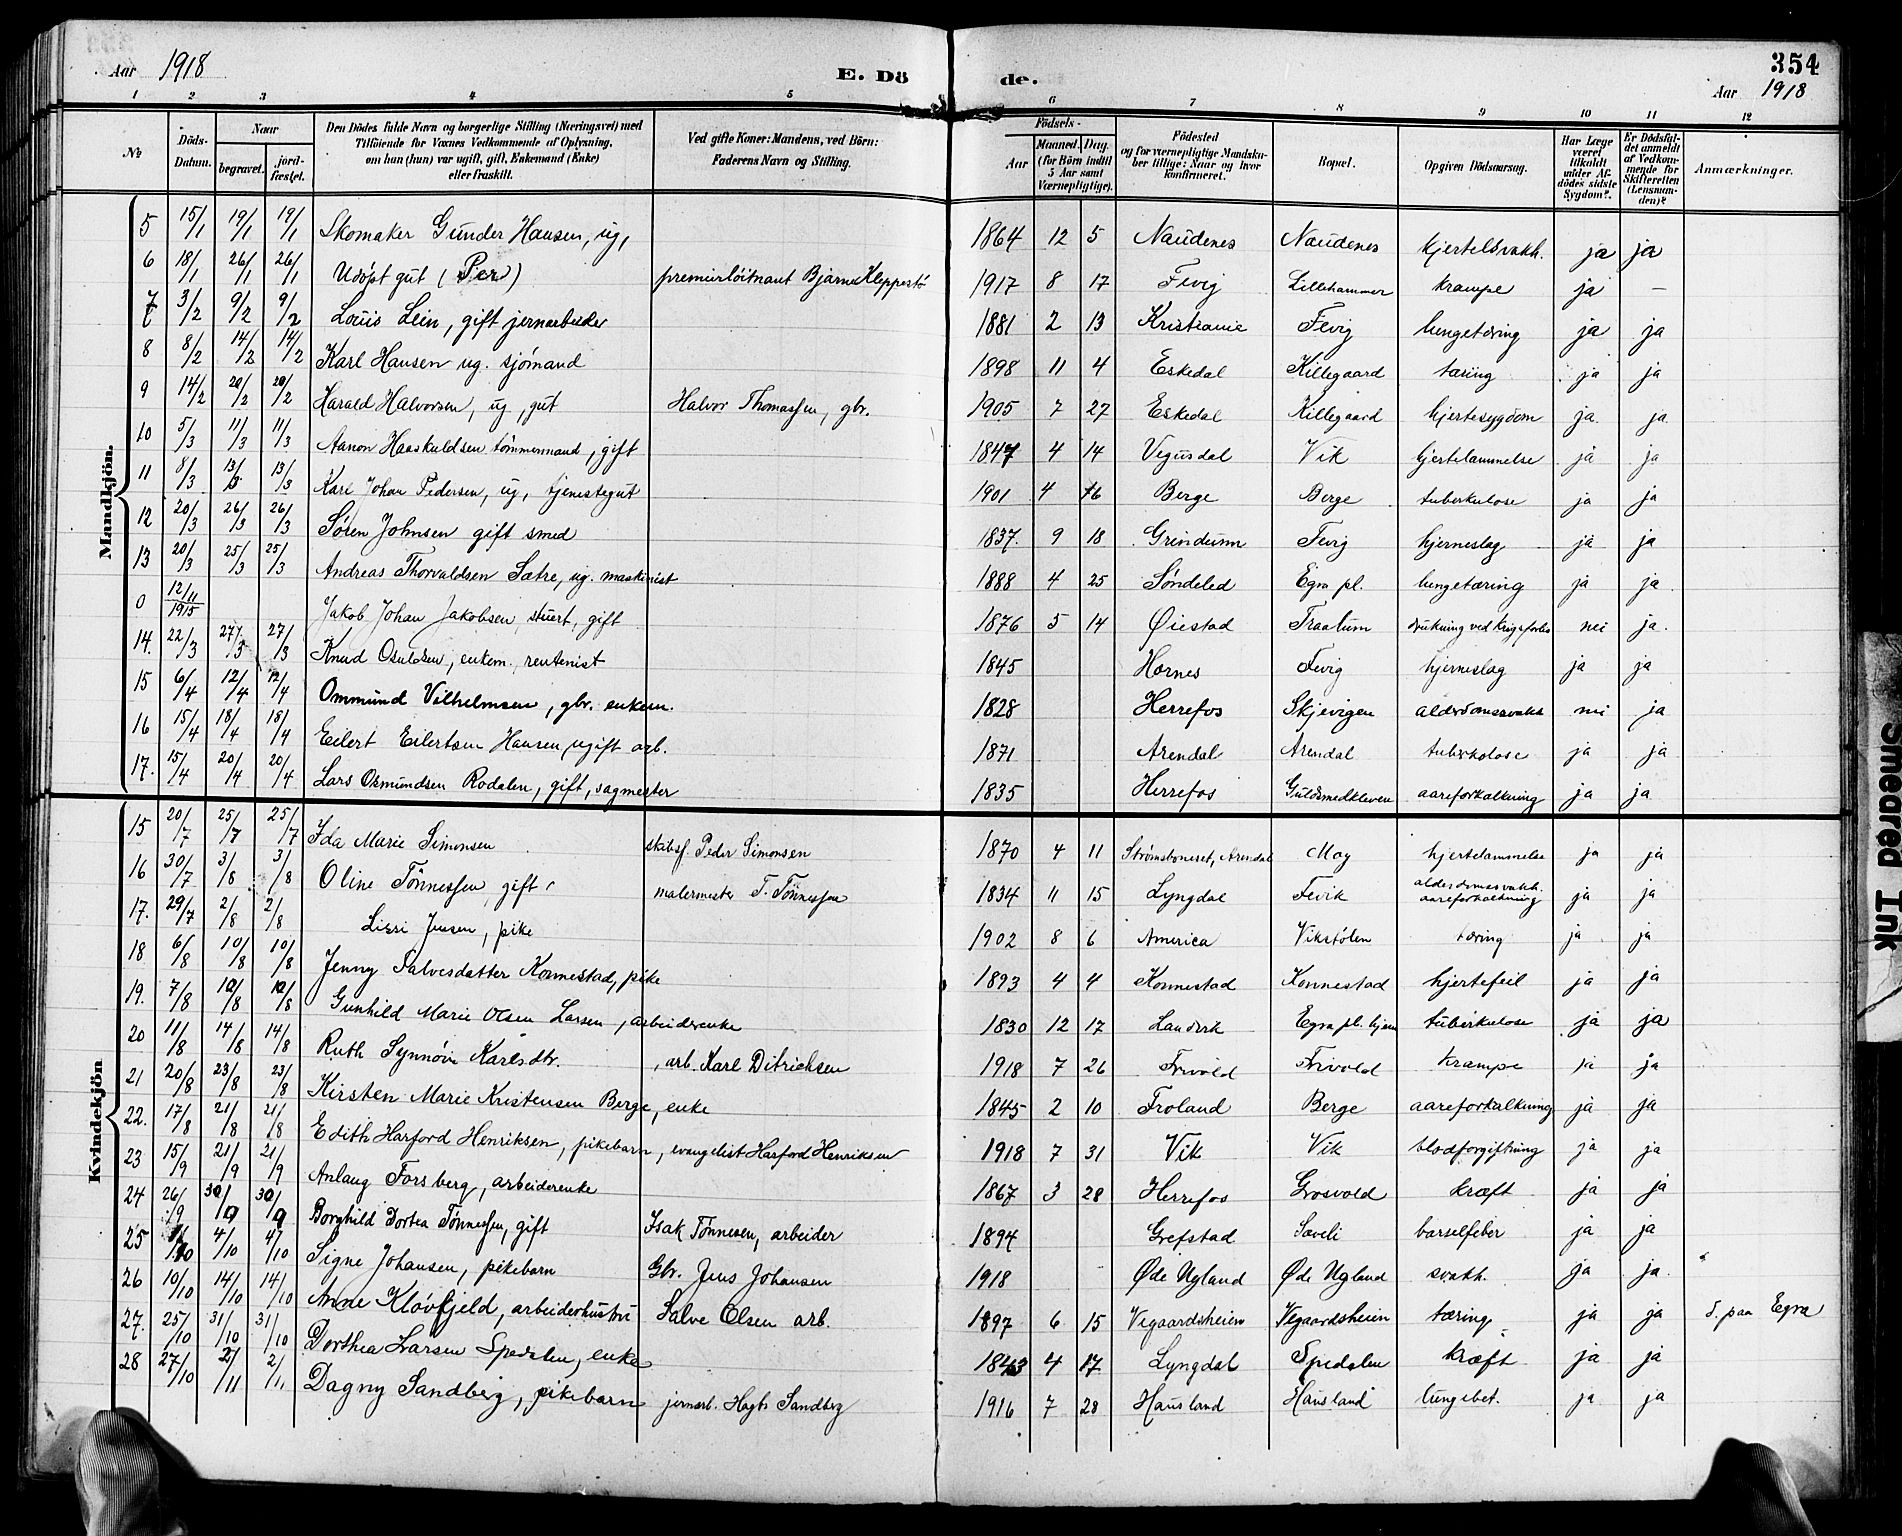 Aar 1918
E. Dö de.
354
Aar 1918
1 2 3 4 5 6 7 8 9 10 11 12
№ Döds-Datum. Naar begravet. jord-fæstet. Den Dödes fulde Navn og borgerlige Stilling (Næringsvei) med Tilföiende for Voxnes Vedkommende af Oplysning, om han (hun) var ugift, gift, Enkemand (Enke) eller fraskilt. Ved gifte Koner: Mandens, ved Börn: Faderens Navn og Stilling. Födsels- Aar Maaned. Dag. (for Börn indtil 5 Aar samt Værnepligtige). Födested og for værnepligtige Mandskaber tillige: Naar og hvor konfirmeret. Bopæl. Opgiven Dödsaarsag. Har Læge været tilkaldt under Afdödes sidste Sygdom? Er Dödsfaldet anmeldt af Vedkommende for Skifteretten (Lensmanden)? Anmærkninger.
Mandkjön.
5 15/1 19/1 19/1 Skomaker Gunder Hansen, ug, 1864 12 5 Naudenes Naudenes hjertesvakh. ja ja
6 18/1 26/1 26/1 Udöpt gut (Per) premierlöitnant Bjarne Kleppestö 1917 8 17 Fevig Lillehammer krampe ja —
7 3/2 9/2 9/2 Louis Lein, gift jernarbeider 1881 2 13 Kristiania Fevig lungetæring ja ja
8 8/2 14/2 14/2 Karl Hansen ug. sjömand 1898 11 4 Eskedal Killegaard tæring ja ja
9 14/2 20/2 20/2 Harald Halvorsen, ug, gut Halvor Thomassen, gbr. 1905 7 27 Eskedal Killegaard hjertesygdom ja. ja
10 5/3 11/3 11/3 Aanon Haaskuldsen tömmermand, gift 1847 4 14 Vegusdal Vik hjertelammelse ja ja
11 8/3 13/3 13/3 Karl Johan Pedersen, ug, tjenestegut 1901 4 16 Berge Berge tuberkulose ja ja
12 20/3 26/3 26/3 Sören Johnsen gift smed 1837. 9 18 Grindum Fevig hjerneslag ja ja
13 20/3 25/3 25/3 Andreas Thorvaldsen Sætre, ug. maskinist 1888 4 25 Söndeled Egra pl. lungetæring ja ja
0 12/11 1915 Jakob Johan Jakobsen, stuert, gift 1876 5 14 Øiestad Traalum drukning ved krigsforlis nei ja.
14. 22/3 27/3 27/3 Knud Osuldsen, enkem., rentenist 1845 Hornes Fevig hjerneslag ja ja
15 6/4 12/4 12/4 Ommund Vilhelmsen, gbr. enkem. 1828 Herrefos Skjevigen alderdomssvakh nei ja
16 15/4 18/4 18/4 Eilert Eilertsen Hansen, ugift arb. 1871 Arendal Arendal tuberkolose ja ja
17. 15/4 20/4 20/4 Lars Osmundsen Rodalen, gift, sagmester 1835 Herrefos Guldsmedkleven aareforkalkning ja ja
Kvindekjön
15 20/7 25/7 25/7 Ida Marie Simonsen skibsf. Peder Simonsen 1870 4 11 Strömsboneset, Arendal Moy hjertelammelse ja ja
16 30/7 3/8 3/8 Oline Tönnessen, gift, malermester T. Tönnessen 1834 11 15 Lyngdal Fevik alderdomssvakh. aareforkalkning ja ja
17. 29/7 2/8 2/8 Lissi Jensen, pike 1902 8 6 America Vikstölen tæring ja ja
18 6/8 10/8 10/8 Jenny Salvesdatter Konnestad, pike 1893 4 4 Konnestad Konnestad hjertefeil ja ja
19. 7/8 10/8 10/8 Gunhild Marie Olsen Larsen, arbeiderenke 1830 12 17 Landvik Egra pl. hjem tuberkulose ja ja
20 11/8 14/8 14/8 Ruth Synnöve Karlsdtr. , arb. Karl Ditrichsen 1918 7 26 Frivold Frivold krampe ja ja
21 20/8 23/8 23/8 Kirsten Marie Kristensen Berge, enke 1845 2 10 Froland Berge aareforkalkning ja ja
22. 17/8 21/8 21/8 Edith Harford Henriksen, pikebarn, evangelist Harford Henriksen 1918 7 31 Vik Vik blodforgiftning ja ja
23 15/9 21/9 21/9 Anlaug Forsberg, arbeiderenke 1867 3 28 Herrefos Grosvold kræft ja ja
24 26/9 30/9 30/9 Borghild Dortea Tönnessen, gift Isak Tönnesen, arbeider 1894 Grefstad Saveli barselfeber ja ja
25 /10 4/10 4/10 Signe Johansen, pikebarn Gbr. Jens Johansen 1918 Øde Ugland Øde Ugland svakh. ja ja.
26 10/10 14/10 14/10 Anne Klövfjeld, arbeiderhustru Salve Olsen arb. 1897 6 15 Vegaardsheien Vegaardsheien tæring ja ja d. paa Egra
27. 25/10 31/10 31/10 Dorthea Larsen Spedalen, enke 1843 4 17 Lyngdal Spedalen kræft ja ja
28 27/10 2/11 2/11 Dagny Sandberg, pikebarn jernarb. Hagb. Sandberg 1916 7 28 Hausland Hausland lungebet. ja ja
Smeared Ink